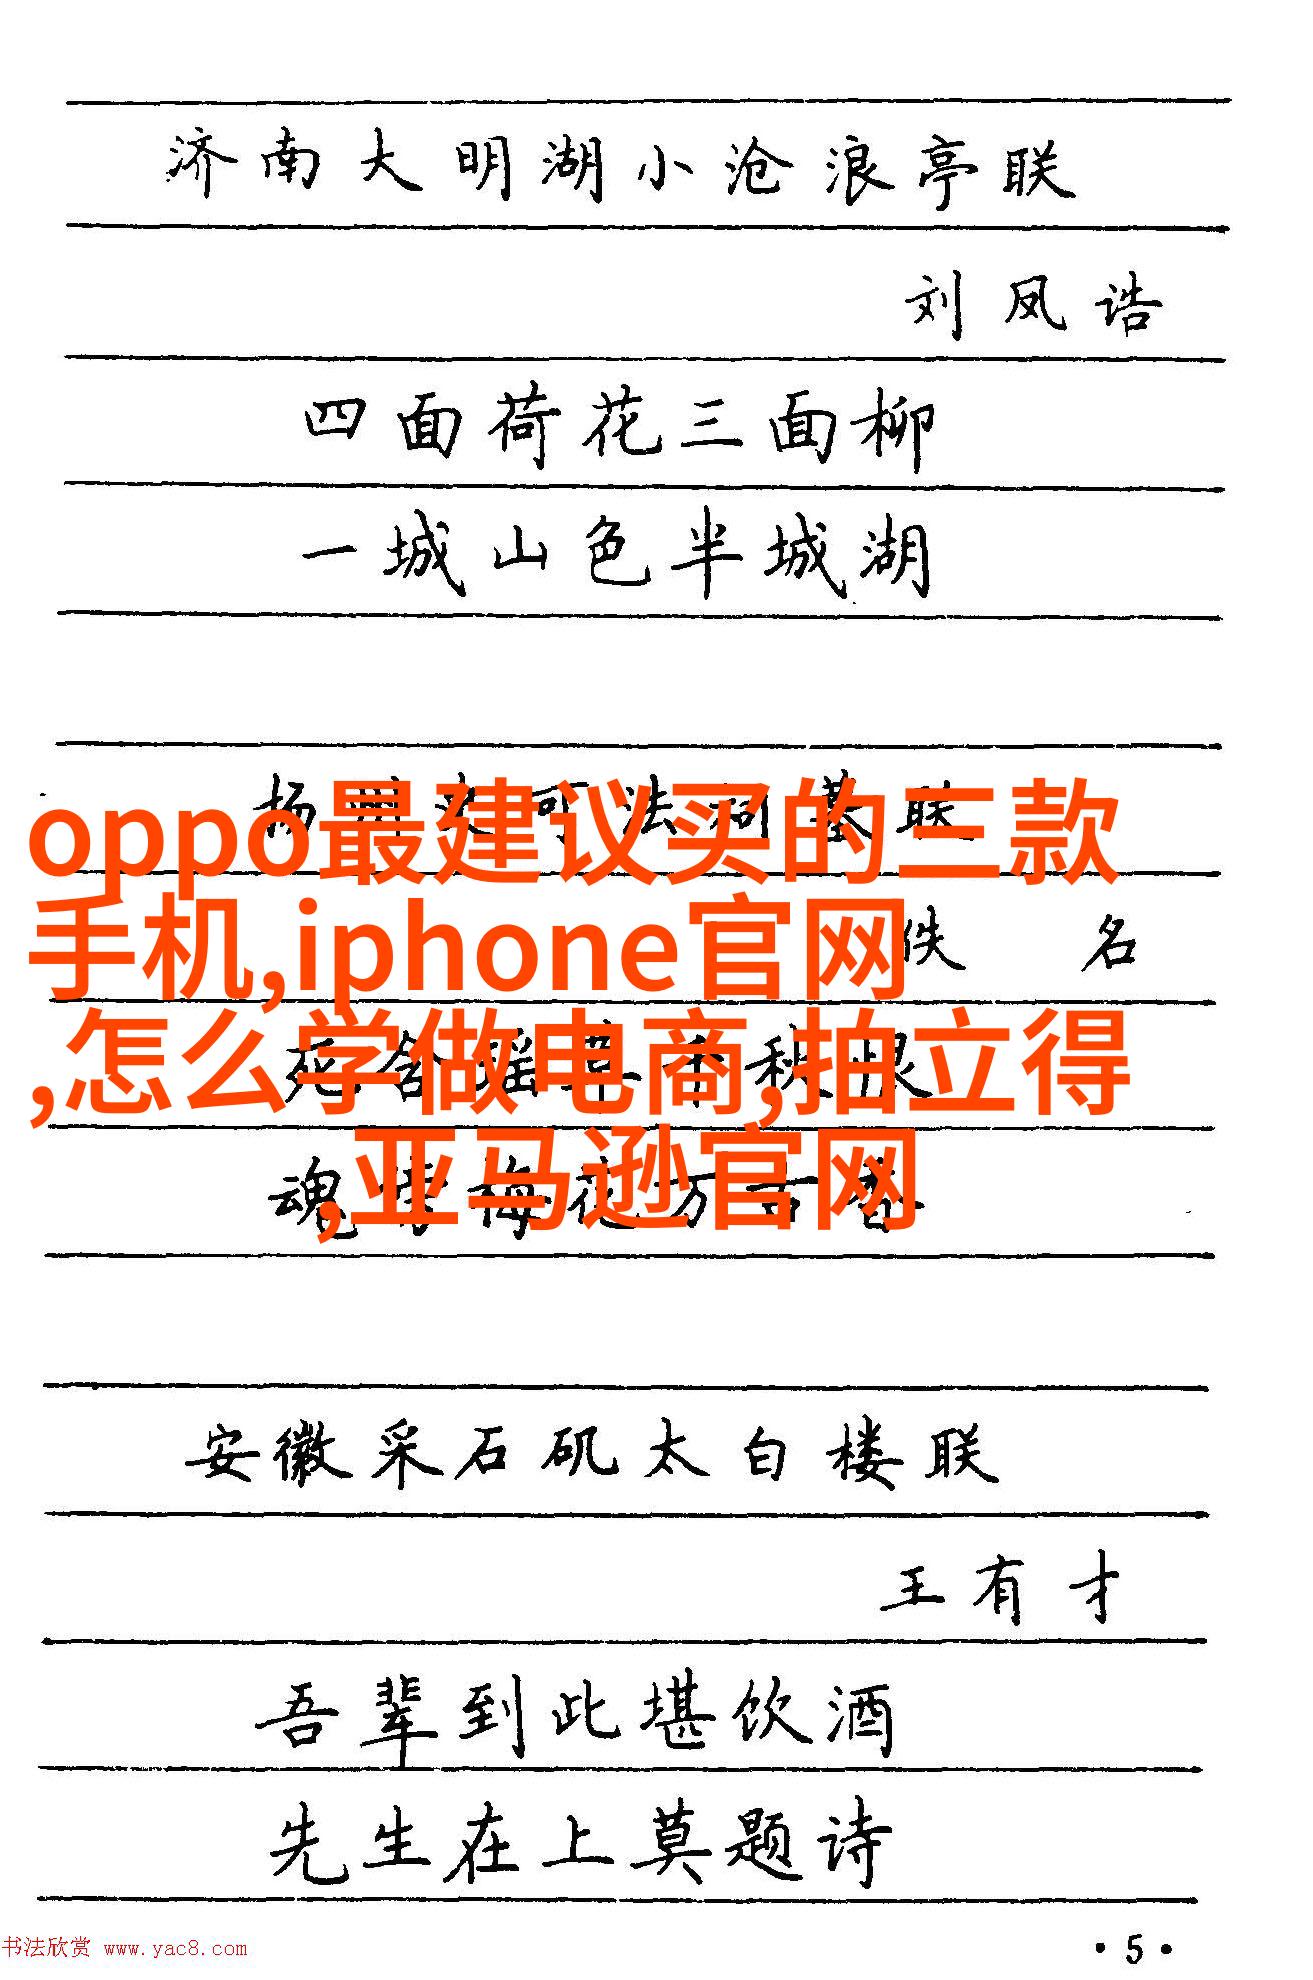 济南大明湖小沧浪亭联
刘凤诰
四面荷花三面柳
一城山色半城湖
扬州史可法祠墓联
oppo最建议买的三款
佚 名
手机,iphone官网
瑶草千秋恨
,怎么学做电商,拍立得
魂 梅花万古香
,亚马逊官网
安徽采石矶太白楼联
王有才
吾辈到此堪饮酒
先生在上莫题诗
书法欣赏 www.yac8.com
·5·